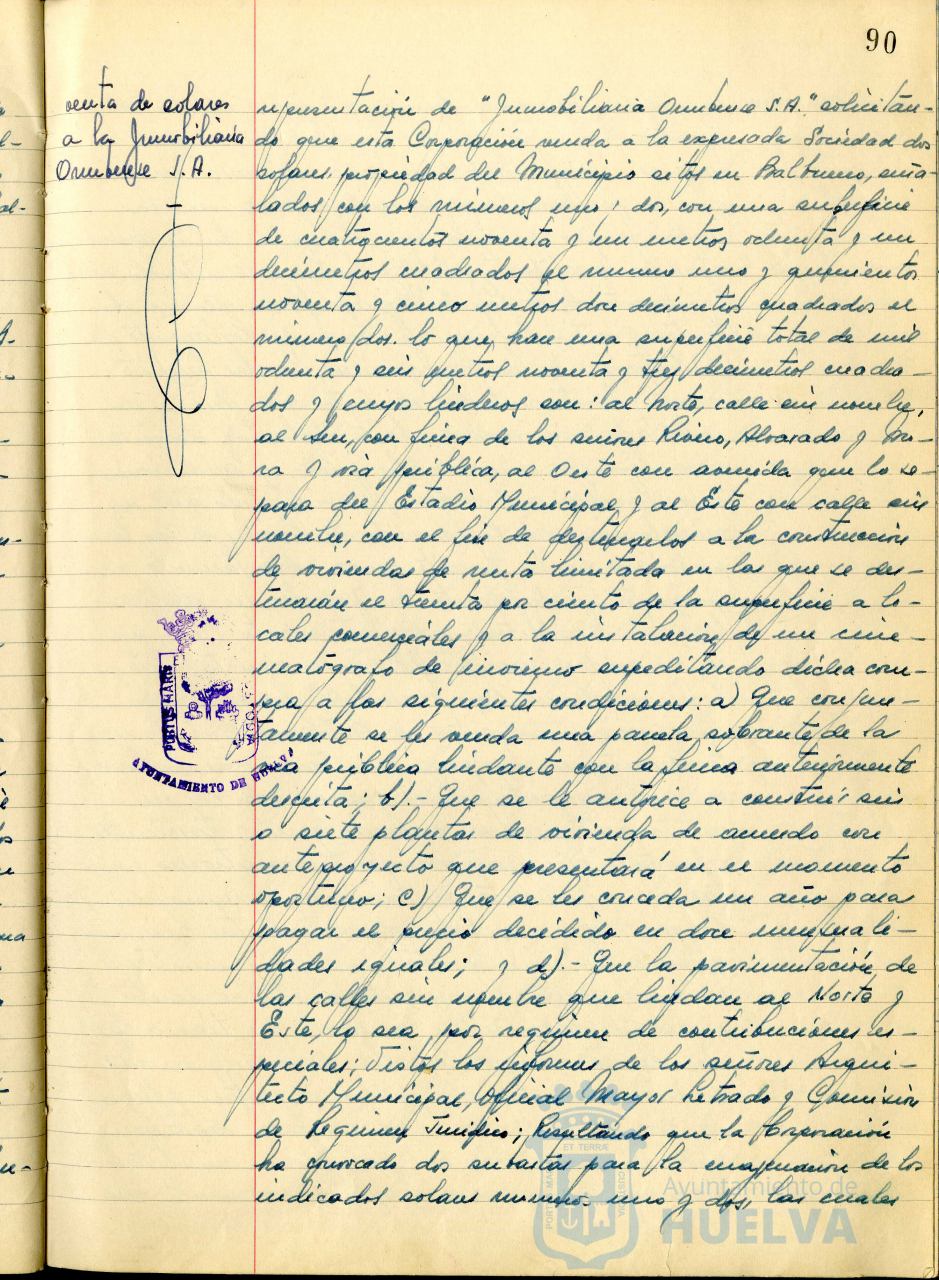 90
venta de solares
a la Inmobiliaria
Onubense S.A.
representación de "Inmobiliaria Onubense S.A." solicitan-
do que esta Corporación venda a la expresada Sociedad dos
solares, propiedad del Municipio sitos en Balbueno, seña-
lados, con los números uno y dos, con una superficie
de cuatrocientos noventa y un metros ochenta y un
decímetros cuadrados el numero uno y quinientos
noventa y cinco metros doce decimetros cuadrados el
número dos. lo que hace una superficie total de mil
ochenta y seis metros noventa y tres decimetros cuadra-
dos y cuyos linderos son: al Norte, calle sin nombre,
al Sur, con finca de los señores Rivino, Alvarado y Mo-
ra y vía pública, al Oeste con avenida que lo se-
para del Estadio Municipal y al Este con calle sin
nombre, con el fin de destinarlos a la construcción
de viviendas de renta limitada en las que se des-
tinarán el treinta por ciento de la superficie a lo-
cales comerciales y a la instalación de un cine-
matógrafo de invierno supeditando dicha com-
pra a las siguientes condiciones: a) Que conjun-
tamente se les venda una parcela sobrante de la
vía pública lindante con la finca anteriormente
descrita; b).- Que se le autorice a construir seis
o siete plantas de vivienda de acuerdo con
anteproyecto que presentará en el momento
oportuno; c) Que se les conceda un año para
pagar el precio decidido en doce mensuali-
dades iguales; y d).- Que la pavimentación de
las calles sin nombre que lindan al Norte y
Este, lo sea por regimen de contribuciones es-
peciales; Vistos los informes de los señores Arqui-
tecto Municipal, Oficial Mayor Letrado y Comisión
de Regimen Juridico; Resultando que la Corporación
ha convocado dos subastas para la enajenación de los
indicados solares números uno y dos, las cuales
PORTUS MARIS
AYUNTAMIENTO DE HUELVA
ET TERRAE
Ayuntamiento de
HUELVA